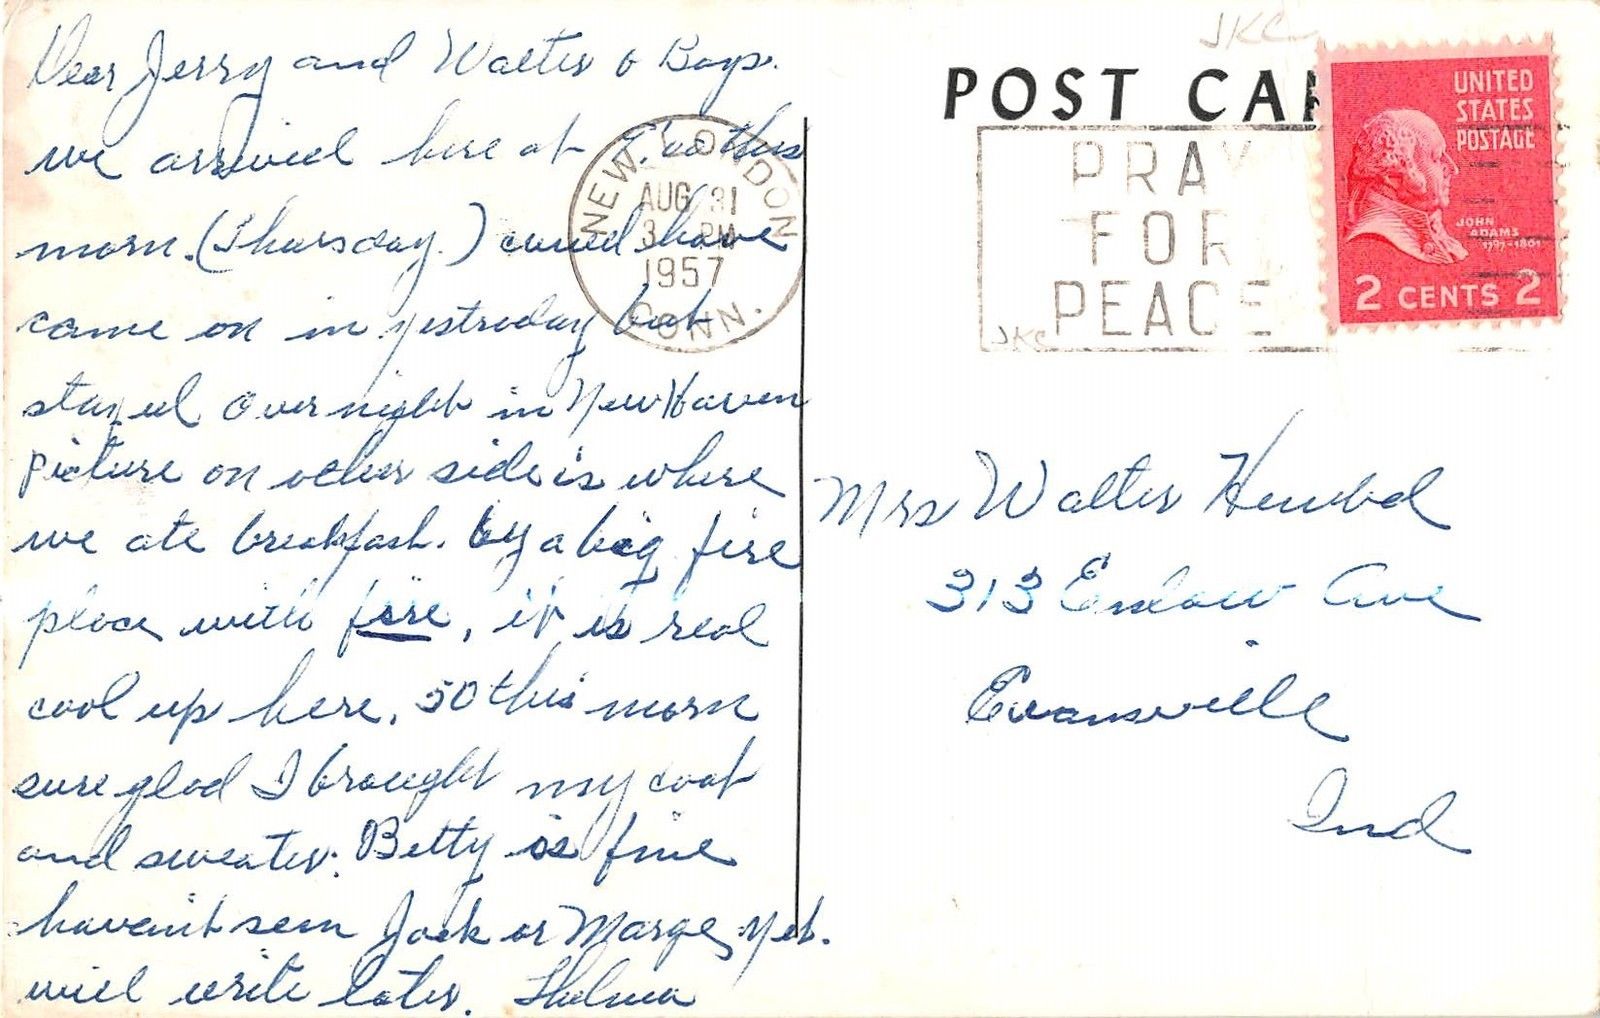 Dear Jerry and Walter & Boys.
we arrived here at this
morn. (Thursday.) could have
came on in yestreday but
stayed over night in New Haven
Picture on other side is where
we ate breakfast. by a big fire
place with fire, it is real
cool up here. 50 this morn
sure glad I brought my coat
and sweater. Betty is fine
haven't seen Jack or Marge, yet.
will write later. Thelma
NEW LONDON
AUG 31
3 PM
1957
CONN.
JKC
POST CAR
PRAY
FOR
PEACE
JKC
UNITED
STATES
POSTAGE
JOHN
ADAMS
1797-1801
2 CENTS 2
Mrs Walter
313 Enlow Ave
Evansville
Ind